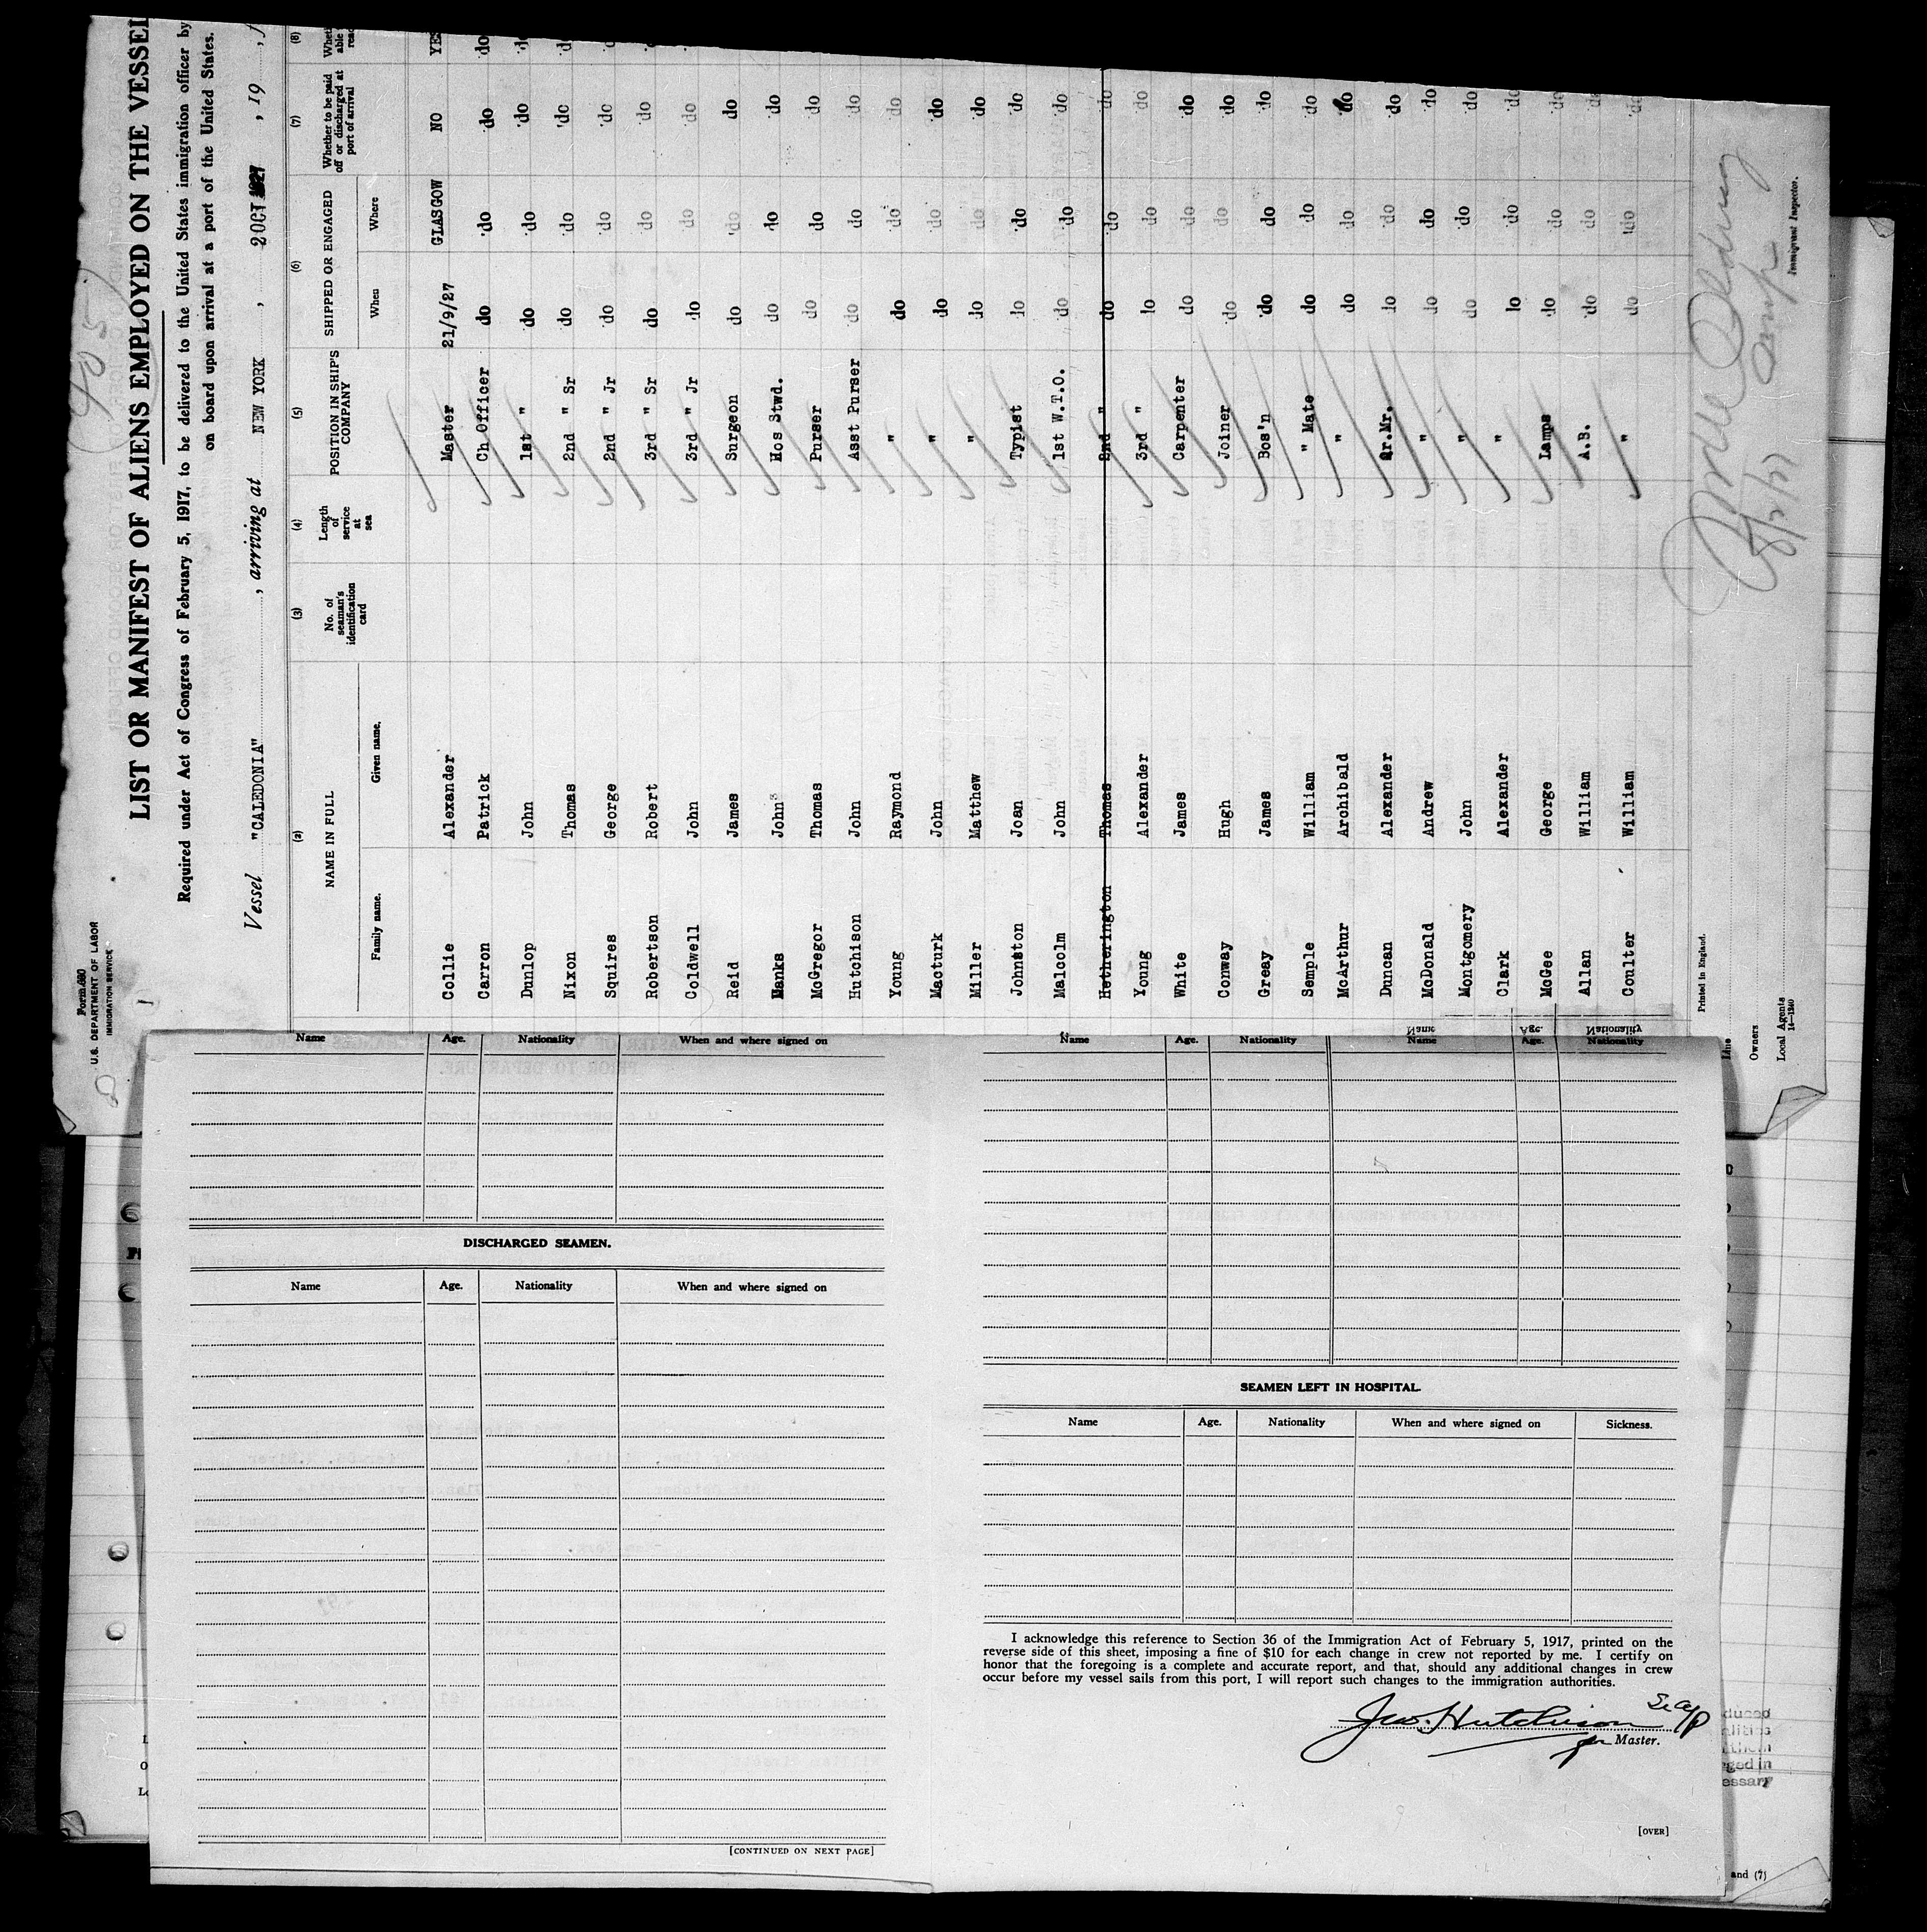 Form 680
U. S. DEPARTMENT OF LABOR
IMMIGRATION SERVICE
LIST OR MANIFEST OF ALIENS EMPLOYED ON THE VESSEL
Required under Act of Congress of February 5, 1917, to be delivered to the United States immigration officer by
on board upon arrival at a port of the United States.
Vessel "CALEDONIA", arriving at NEW YORK, 2 OCT 1927, 19
(2) (3) (4) (5) (6) (7) (8)
NAME IN FULL
Family name. Given name.
No. of seaman's identification card
Length of service at sea
POSITION IN SHIP'S COMPANY
SHIPPED OR ENGAGED
When Where
Whether to be paid off or discharged at port of arrival
Collie Alexander Master 21/9/27 GLASGOW NO YES
Carron Patrick Ch Officer do do do do
Dunlop John 1st " do do do do
Nixon Thomas 2nd " Sr do do do
Squires George 2nd " Jr do do do
Robertson Robert 3rd " Sr do do do
Coldwell John 3rd " Jr do do do
Reid James Surgeon do do do
Hanks John Hos Stwd. do do do
McGregor Thomas Purser do do do
Hutchison John Asst Purser do do do
Young Raymond " do do do
Macturk John " do do do
Miller Matthew " do do do
Johnston Joan Typist do do do
Malcolm John 1st W.T.O. do do do
Hetherington Thomas 2nd " do do do
Young Alexander 3rd " do do do
White James Carpenter do do do
Conway Hugh Joiner do do do
Greay James Bos'n do do do
Semple William " Mate do do do
McArthur Archibald " do do do
Duncan Alexander Qr.Mr. do do do
McDonald Andrew " do do do
Montgomery John " do do do
Clark Alexander " do do do
McGee George Lamps do do do
Allan William A.B. do do do
Coulter William " do do do
Printed in England.
Line
Owners
Local Agents
14—1240
Immigrant Inspector.
Name Age. Nationality When and where signed on
DISCHARGED SEAMEN.
Name Age. Nationality When and where signed on
[CONTINUED ON NEXT PAGE]
Name Age. Nationality Name Age. Nationality
SEAMEN LEFT IN HOSPITAL.
Name Age. Nationality When and where signed on Sickness.
I acknowledge this reference to Section 36 of the Immigration Act of February 5, 1917, printed on the
reverse side of this sheet, imposing a fine of $10 for each change in crew not reported by me. I certify on
honor that the foregoing is a complete and accurate report, and that, should any additional changes in crew
occur before my vessel sails from this port, I will report such changes to the immigration authorities.
Jno. Hutchison
for Master.
[OVER]
and (7)